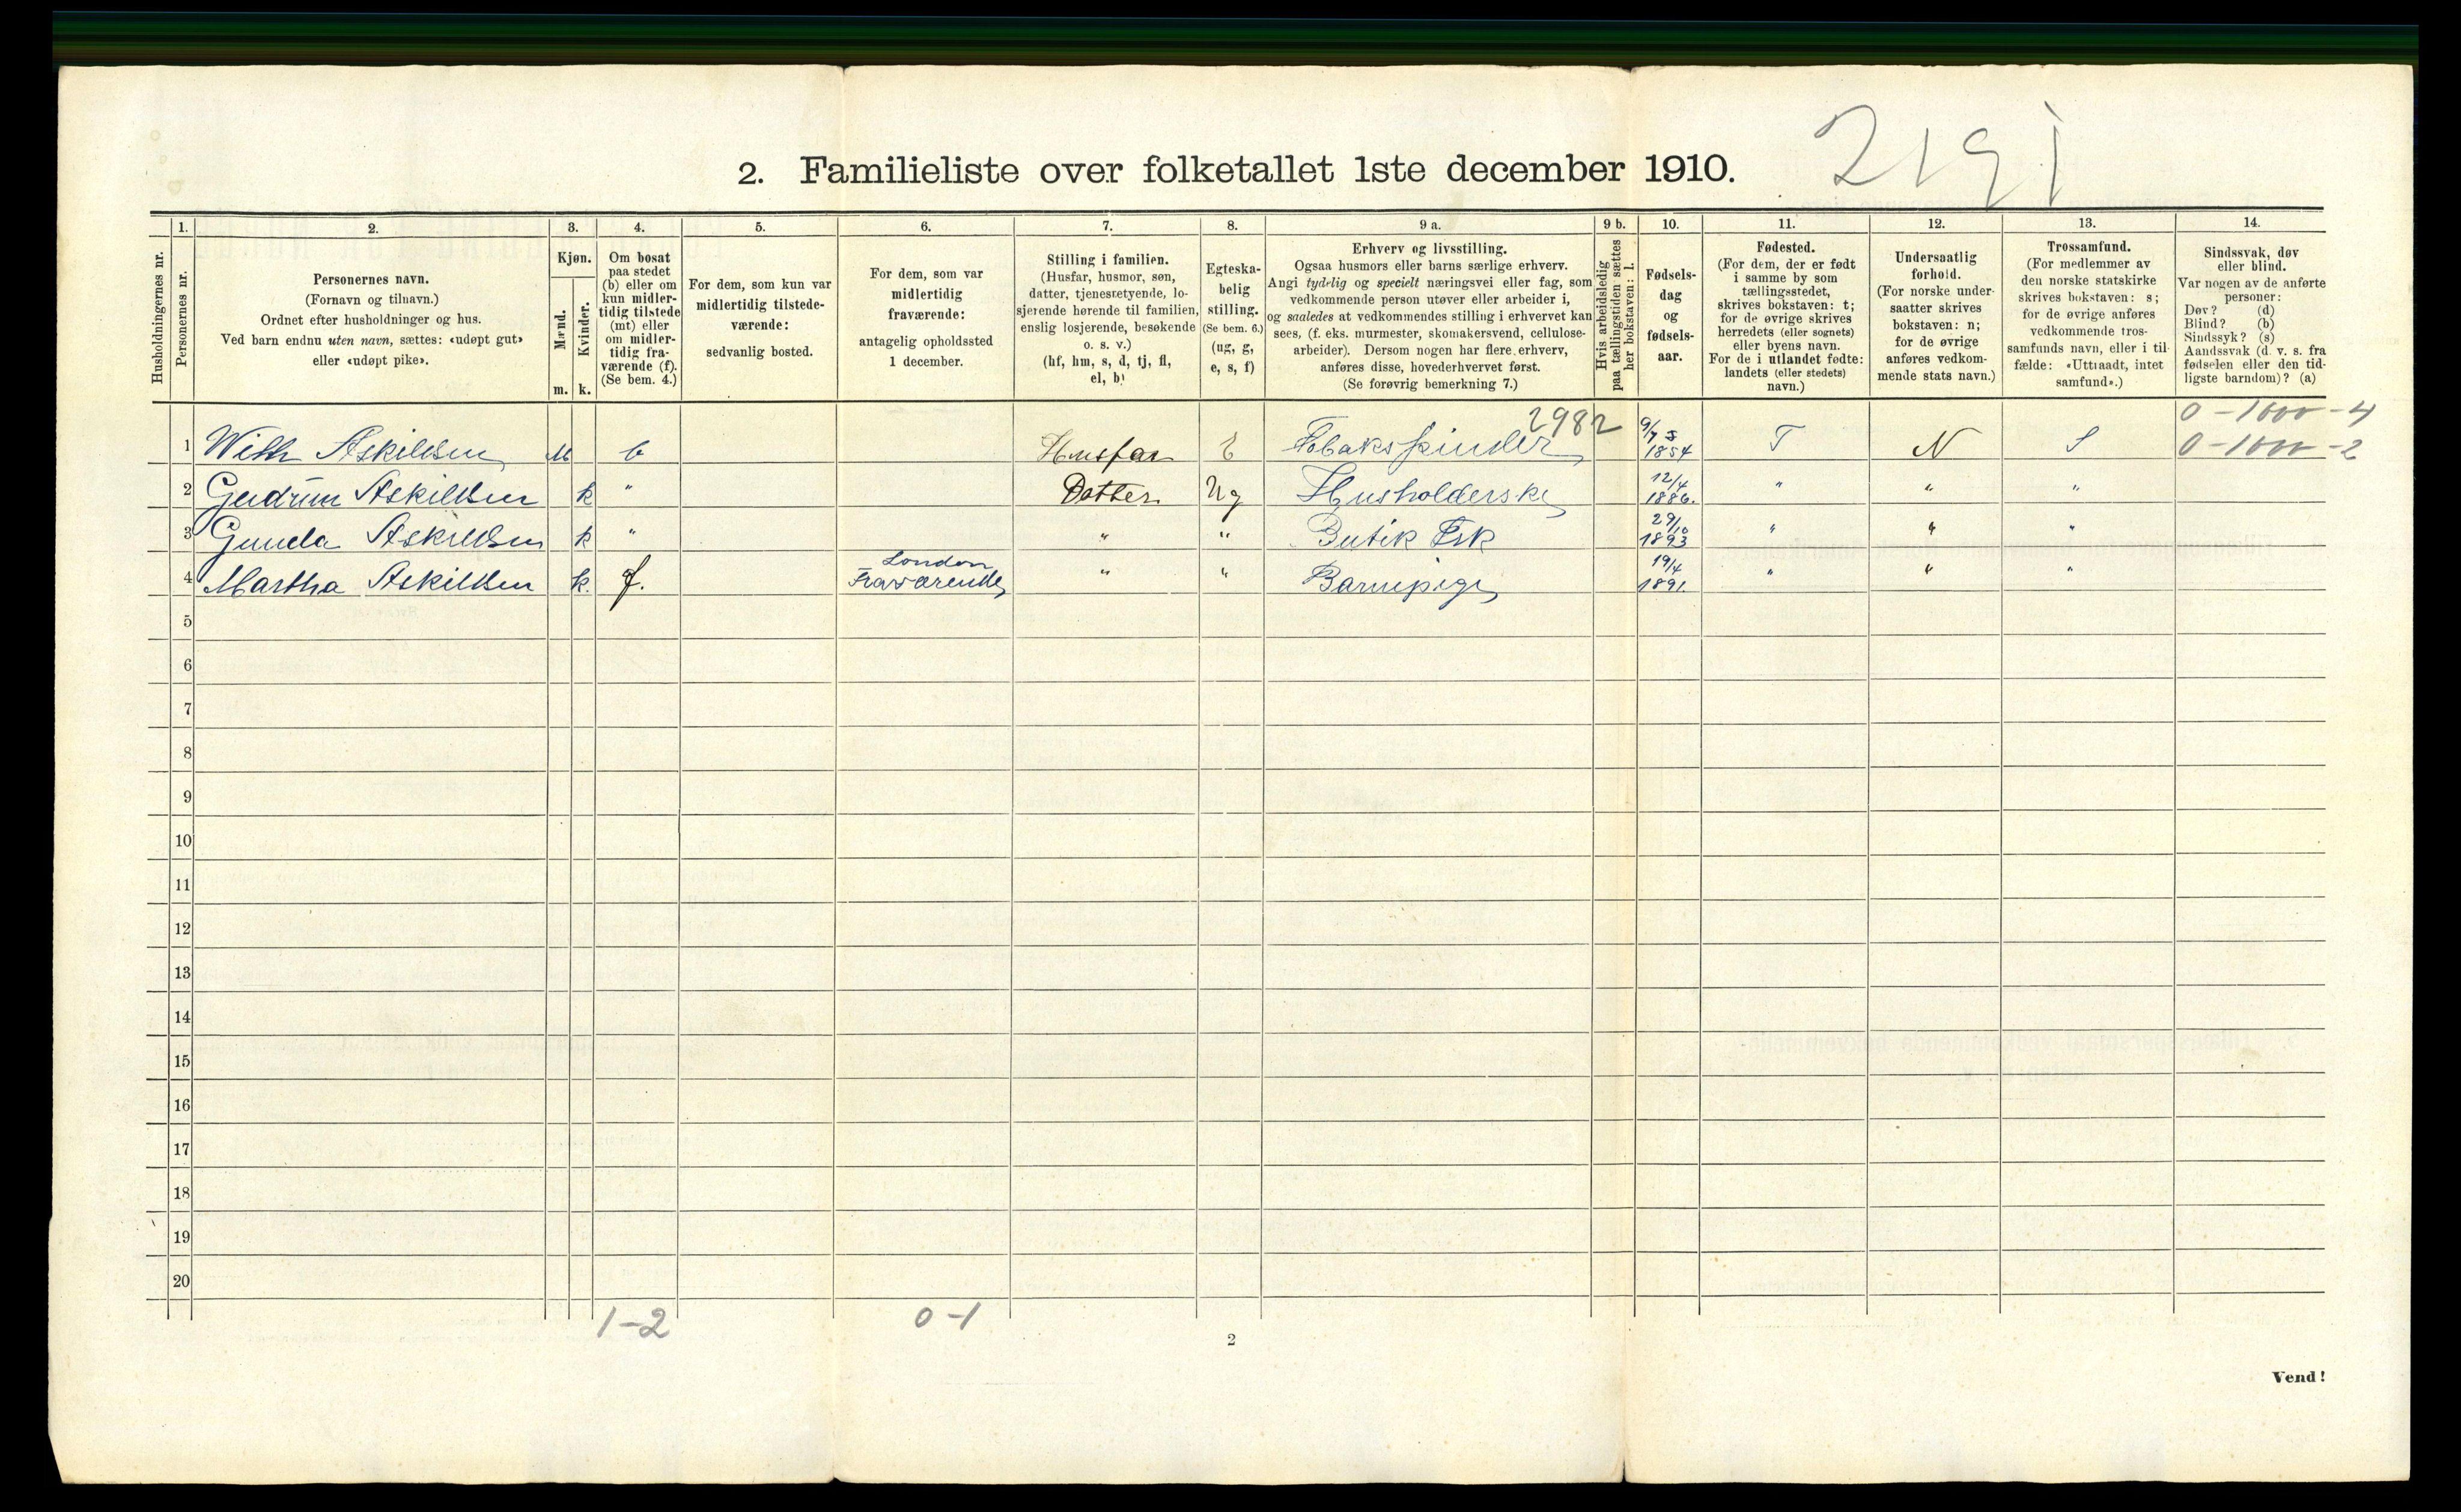 2191
2. Familieliste over folketallet 1ste december 1910.
Husholdningernes nr.
1.
Personernes nr.
2.
Personernes navn.
(Fornavn og tilnavn.)
Ordnet efter husholdninger og hus.
Ved barn endnu uten navn, sættes: «udøpt gut»
eller «udøpt pike».
3.
Kjøn.
Mænd.
Kvinder.
m. k.
4.
Om bosat
paa stedet
(b) eller om
kun midler-
tidig tilstede
(mt) eller
om midler-
tidig fra-
værende (f).
(Se bem. 4.)
5.
For dem, som kun var
midlertidig tilstede-
værende:
sedvanlig bosted.
6.
For dem, som var
midlertidig
fraværende:
antagelig opholdssted
1 december.
7.
Stilling i familien.
(Husfar, husmor, søn,
datter, tjenestetyende, lo-
sjerende hørende til familien,
enslig losjerende, besøkende
o. s. v.)
(hf, hm, s, d, tj, fl,
el, b)
8.
Egteska-
belig
stilling.
(Se bem. 6.)
(ug, g,
e, s, f)
9 a.
Erhverv og livsstilling.
Ogsaa husmors eller barns særlige erhverv.
Angi tydelig og specielt næringsvei eller fag, som
vedkommende person utøver eller arbeider i,
og saaledes at vedkommendes stilling i erhvervet kan
sees, (f. eks. murmester, skomakersvend, cellulose-
arbeider). Dersom nogen har flere erhverv,
anføres disse, hovederhvervet først.
(Se forøvrig bemerkning 7.)
9 b.
Hvis arbeidsledig
paa tællingstiden sættes
her bokstaven: l.
10.
Fødsels-
dag
og
fødsels-
aar.
11.
Fødested.
(For dem, der er født
i samme by som
tællingsstedet,
skrives bokstaven: t;
for de øvrige skrives
herredets (eller sognets)
eller byens navn.
For de i utlandet fødte:
landets (eller stedets)
navn.)
12.
Undersaatlig
forhold.
(For norske under-
saatter skrives
bokstaven: n;
for de øvrige
anføres vedkom-
mende stats navn.)
13.
Trossamfund.
(For medlemmer av
den norske statskirke
skrives bokstaven: s;
for de øvrige anføres
vedkommende tros-
samfunds navn, eller i til-
fælde: «Uttraadt, intet
samfund».)
14.
Sindssvak, døv
eller blind.
Var nogen av de anførte
personer:
Døv? (d)
Blind? (b)
Sindssyk? (s)
Aandssvak (d. v. s. fra
fødselen eller den tid-
ligste barndom)? (a)
0-1000-4
2982
1 Wilh Askildsen M b Husfar E Tobakspinder 9/7 1854 T N S 0-1000-2
2 Gudrun Askildsen k " Datter Ug Husholderske 12/4 1886. " " "
3 Gunda Askildsen k " " " Butik Esk 29/10 1893 " " "
4 Martha Askildsen k. f. London Fraværende " " Barnepige 19/4 1891. " " "
5
6
7
8
9
10
11
12
13
14
15
16
17
18
19
20
1-2 0-1
2
Vend!